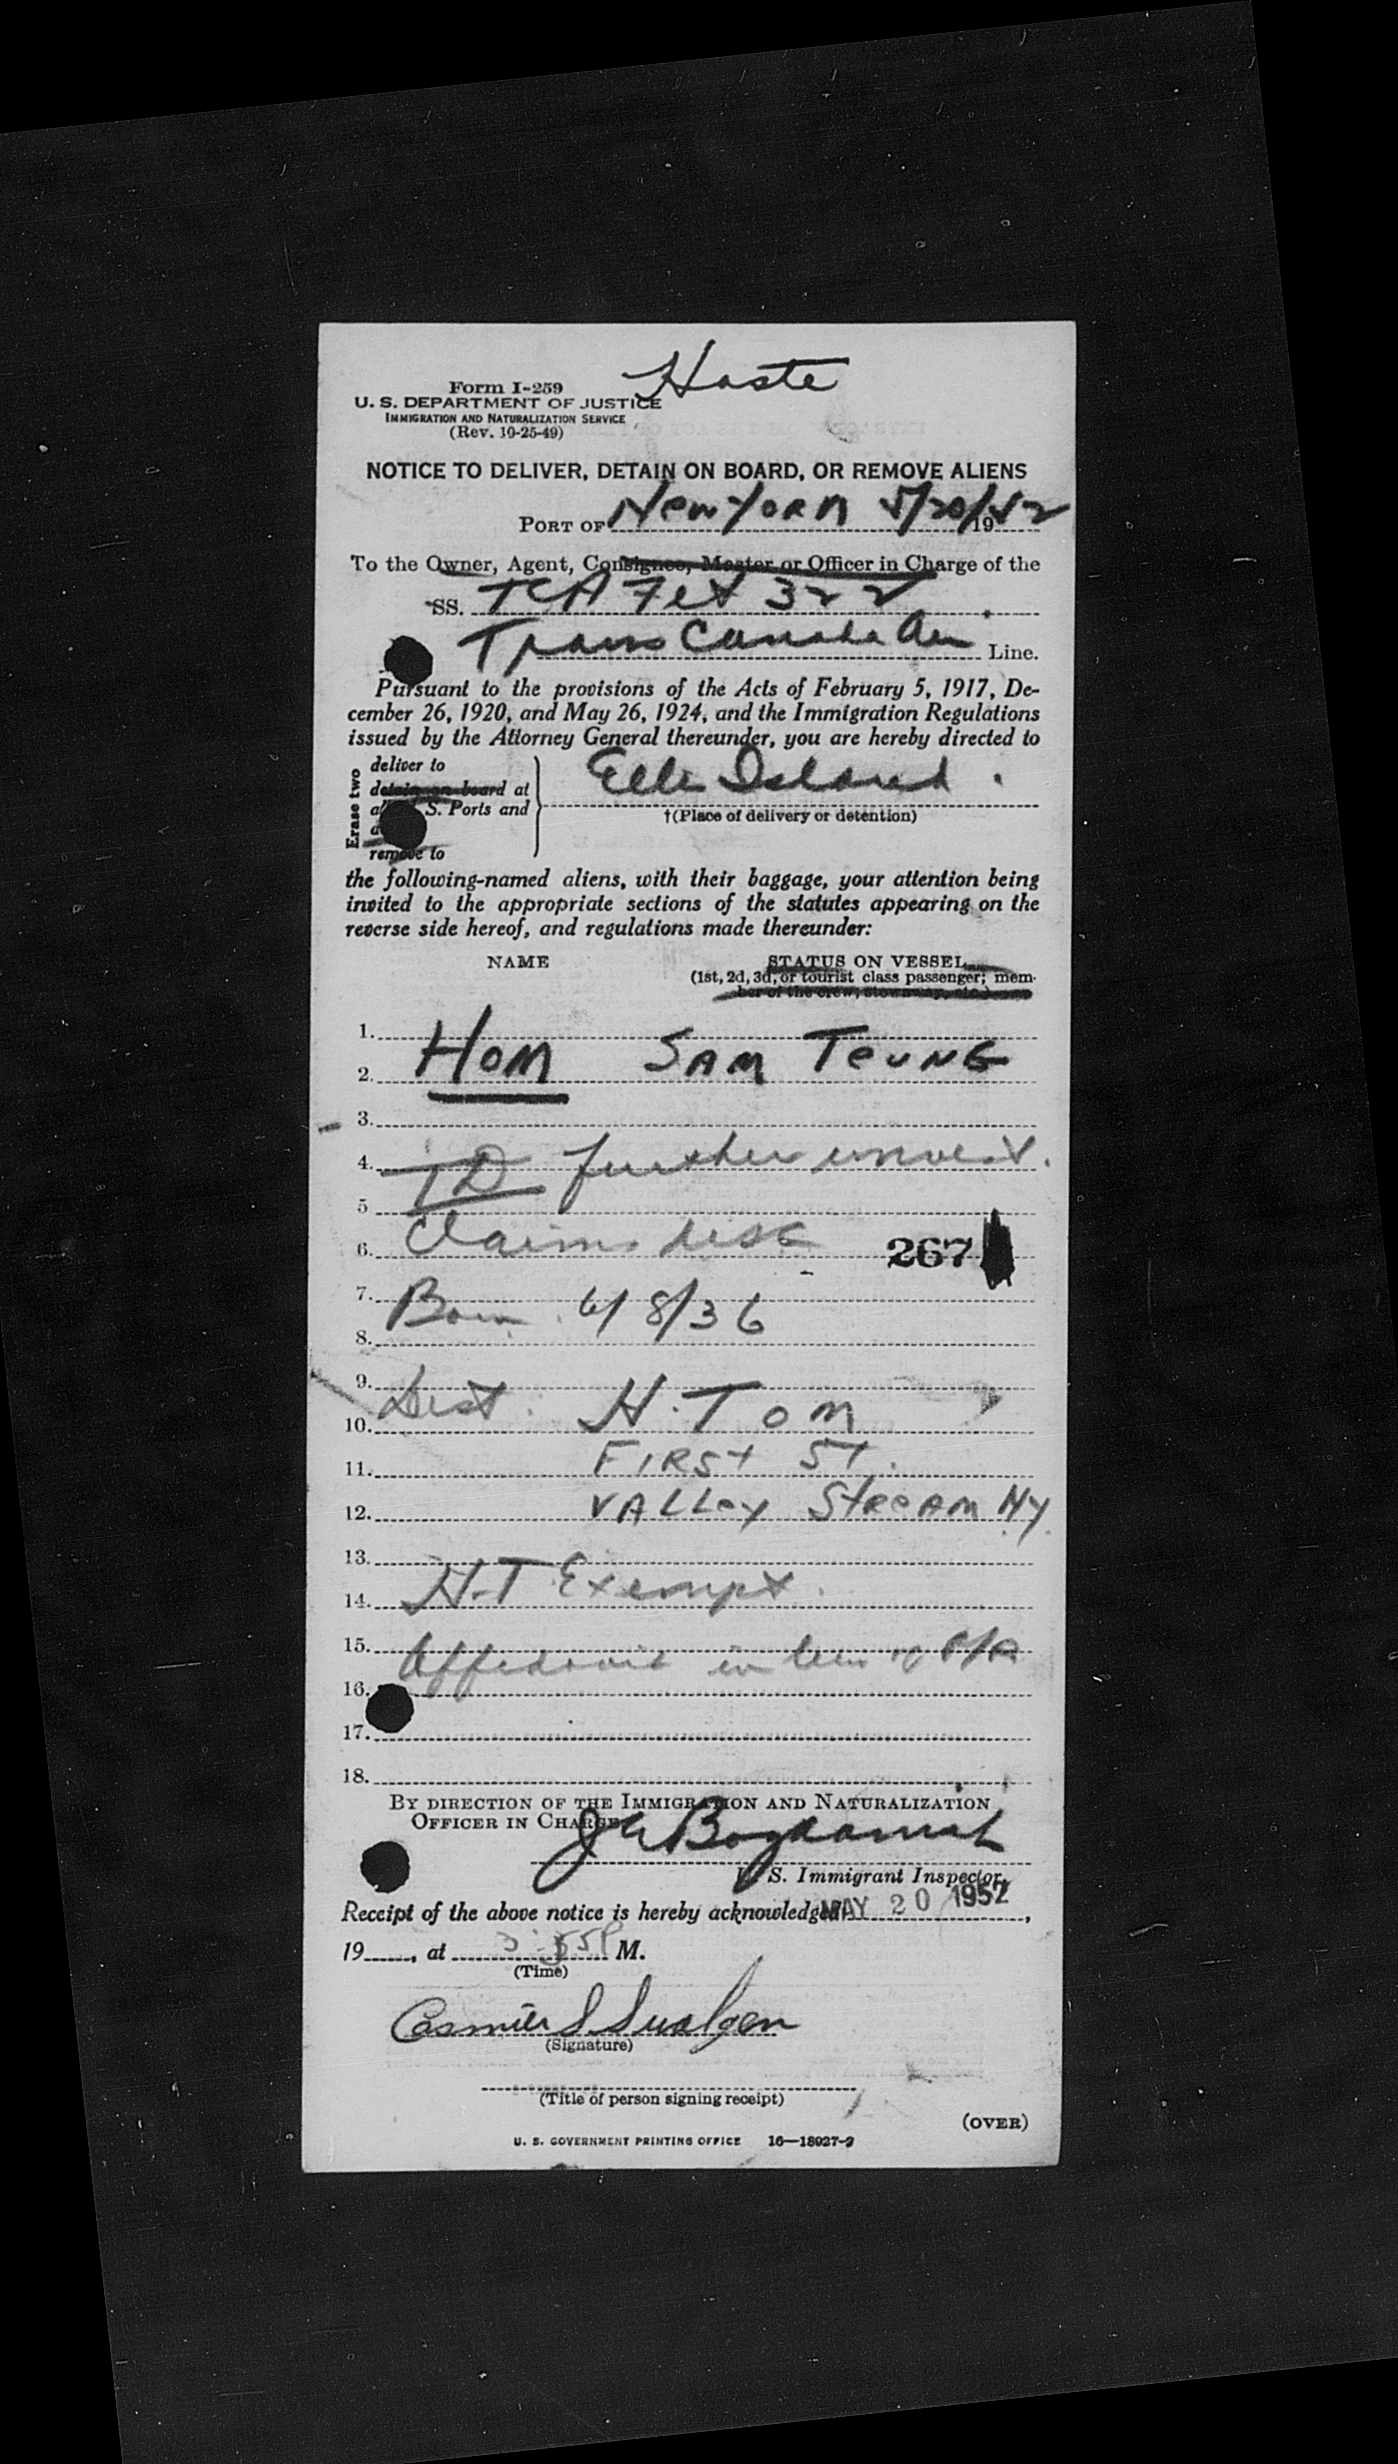 Haste
Form I-259
U. S. DEPARTMENT OF JUSTICE
IMMIGRATION AND NATURALIZATION SERVICE
(Rev. 10-25-49)
NOTICE TO DELIVER, DETAIN ON BOARD, OR REMOVE ALIENS
PORT OF New York 5/20/1952
To the Owner, Agent, Consignee, Master or Officer in Charge of the
SS. TCA Flt 322
Trans Canada Air Line.
Pursuant to the provisions of the Acts of February 5, 1917, De-
cember 26, 1920, and May 26, 1924, and the Immigration Regulations
issued by the Attorney General thereunder, you are hereby directed to
Erase two
deliver to
detain on board at
S. Ports and
remove to
Ellis Island.
†(Place of delivery or detention)
the following-named aliens, with their baggage, your attention being
invited to the appropriate sections of the statutes appearing on the
reverse side hereof, and regulations made thereunder:
NAME STATUS ON VESSEL
(1st, 2d, 3d, or tourist class passenger; mem-
ber of the crew, stowaway, etc.)
1.
2. HOM SAM TEUNG
3.
4. TD further
5
6. Claims USC 267
7. Born 6/8/36
8.
9.
10. Dest: H. TOM
11. FIRST ST.
12. VALLEY STREAM NY
13.
14. H-T Exempt.
15. Affidavit in lieu of P/A
16.
17.
18.
BY DIRECTION OF THE IMMIGRATION AND NATURALIZATION
OFFICER IN CHARGE
U. S. Immigrant Inspector.
Receipt of the above notice is hereby acknowledged MAY 20 1952,
19, at M.
(Time)
(Signature)
(Title of person signing receipt)
(OVER)
U. S. GOVERNMENT PRINTING OFFICE 16—18027-2